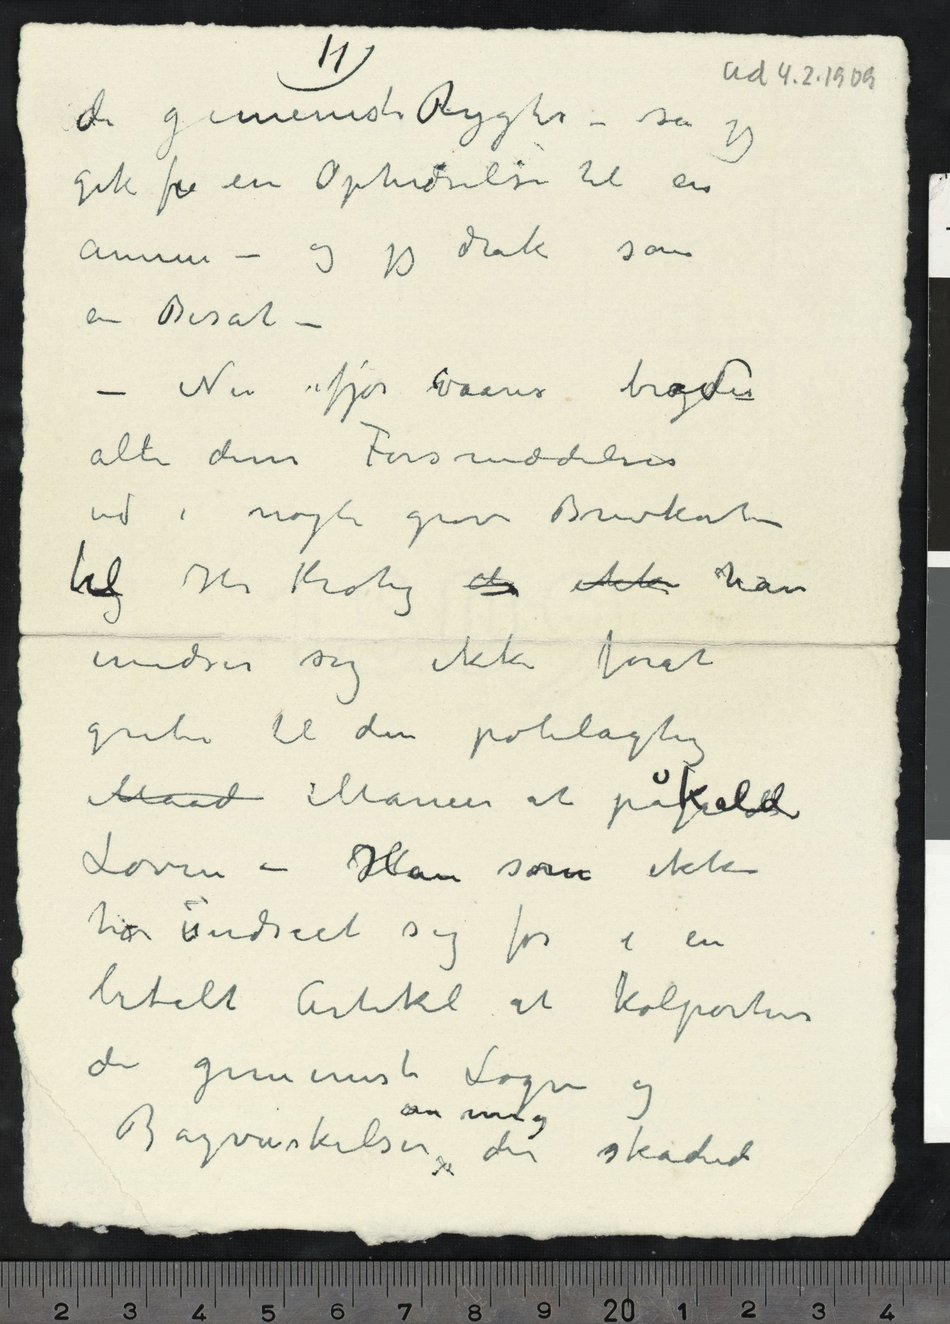 11
ad 4.2.1909
de gemeneste Rygter – så jeg
gik fra en Ophidselse til en
annen – og jeg drak som
en Besat –
– Nu ifjor vaares bragdes
alle disse Forsmædelser
ud i nogle grove Brevkort
til Hr Krohg ikke han
undser sig ikke forat
gribe til den pøbelagtig
Maad Maneer at påkalde
Loven – Han som ikke
har undseet sig for i en
betalt Artikel at kolportere
de gemeneste Løgne og
om mig
Bagvaskelser der skaded
2 3 4 5 6 7 8 9 20 1 2 3 4